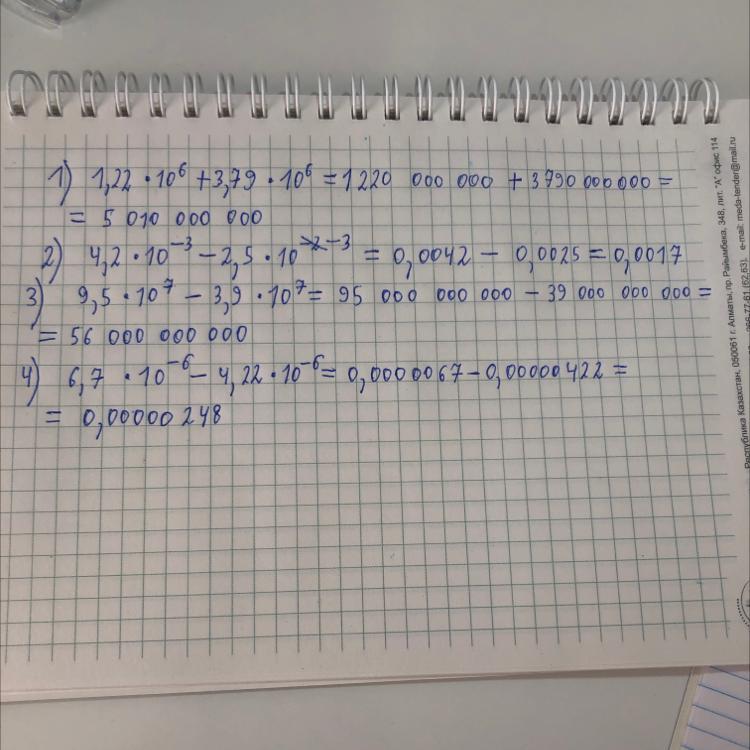 1) 1,22 · 10⁶ + 3,79 · 10⁶ = 1 220 000 000 + 3 790 000 000 =
= 5 010 000 000
2) 4,2 · 10⁻³ − 2,5 · 10⁻³ = 0,0042 − 0,0025 = 0,0017
3) 9,5 · 10⁷ − 3,9 · 10⁷ = 95 000 000 000 − 39 000 000 000 =
= 56 000 000 000
4) 6,7 · 10⁻⁶ − 4,22 · 10⁻⁶ = 0,0000067 − 0,00000422 =
= 0,00000248
Республика Казахстан, 050061 г. Алматы, пр. Райымбека, 348, лит. "А" офис 114
266-77-61 (62,63), e-mail: meda-tender@mail.ru